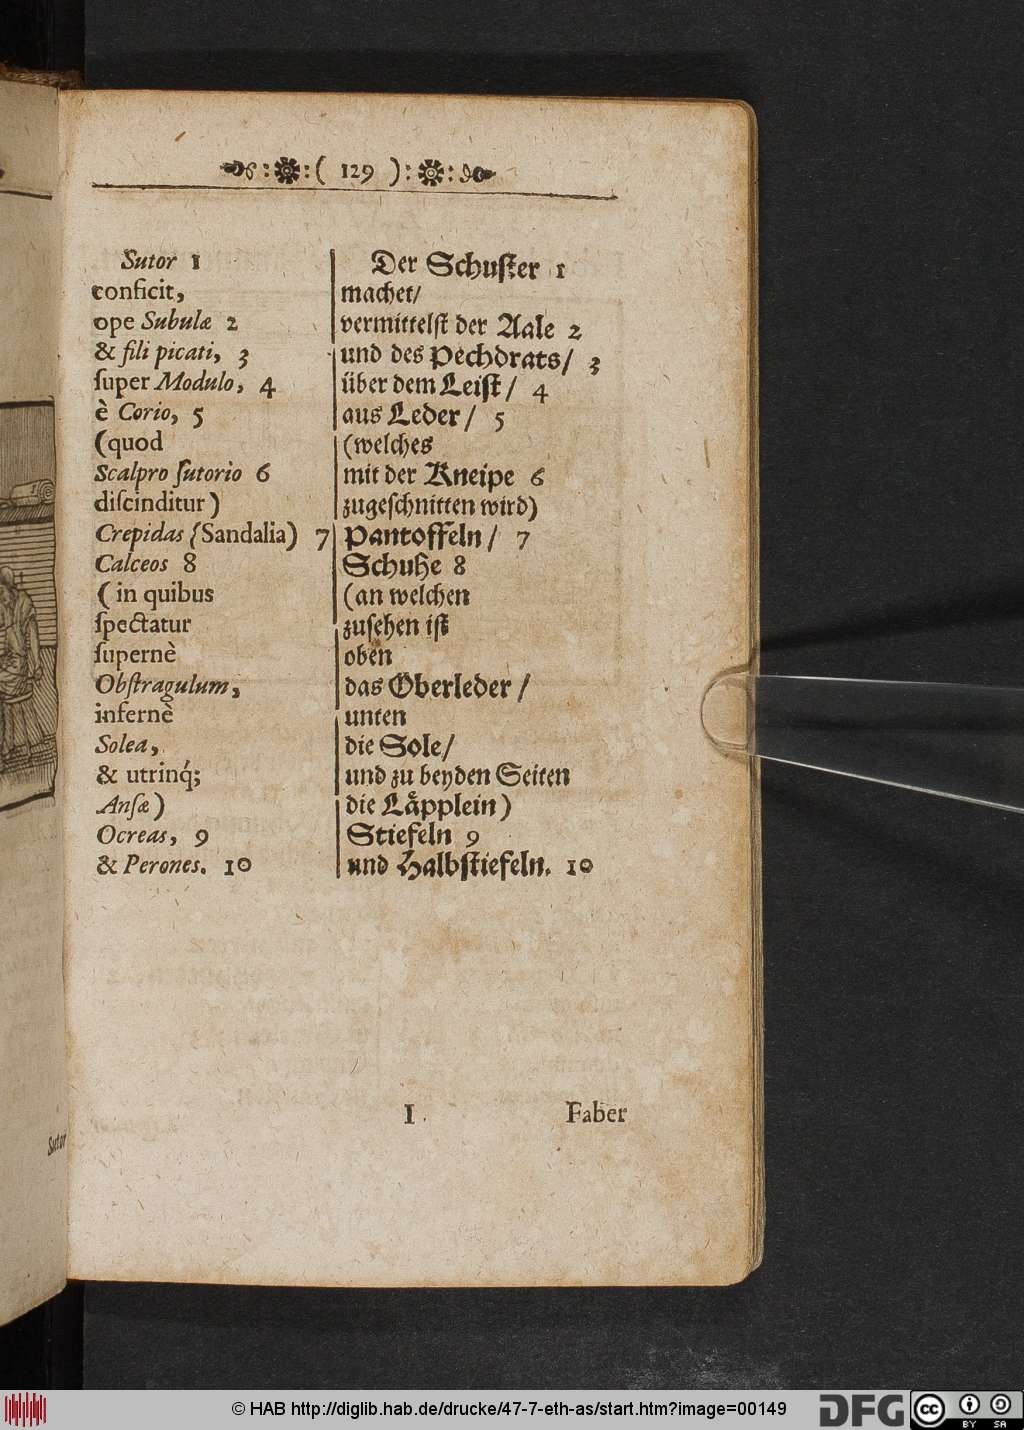 ( 129 )
Sutor 1
conficit,
ope Subulæ 2
& fili picati, 3
ſuper Modulo, 4
è Corio, 5
(quod
Scalpro ſutorio 6
diſcinditur)
Crepidas (Sandalia) 7
Calceos 8
( in quibus
ſpectatur
ſupernè
Obſtragulum,
infernè
Solea,
& utrinq́;
Anſæ)
Ocreas, 9
& Perones. 10
Der Schuſter 1
machet/
vermittelſt der Aale 2
und des Pechdrats/ 3
über dem Leiſt/ 4
aus Leder/ 5
(welches
mit der Kneipe 6
zugeſchnitten wird)
Pantoffeln/ 7
Schuhe 8
(an welchen
zuſehen iſt
oben
das Oberleder/
unten
die Sole/
und zu beyden Seiten
die Läpplein)
Stiefeln 9
und Halbſtiefeln. 10
I
Faber
Sutor
© HAB http://diglib.hab.de/drucke/47-7-eth-as/start.htm?image=00149
DFG
cc
BY SA